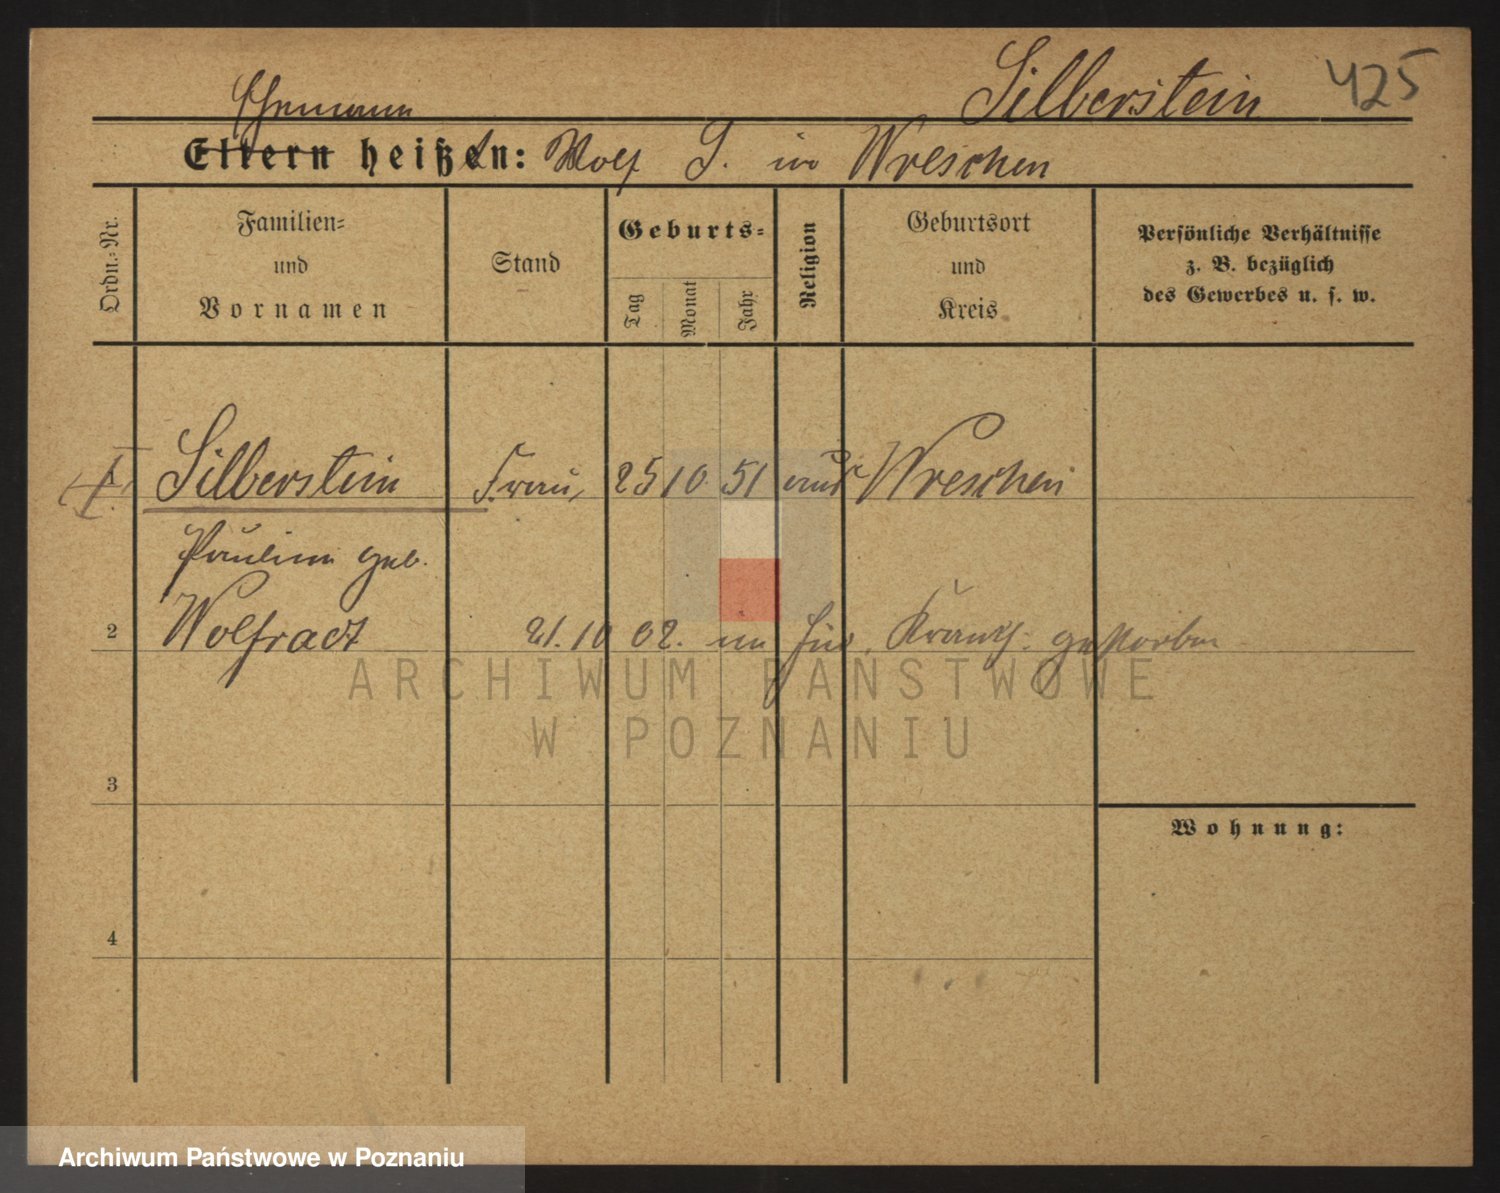 Silberstein 425
Ehemann
Eltern heißen: Wolf S. in Wreschen
Ordn.-Nr.
Familien-
und
Vornamen
Stand
Geburts-
Tag
Monat
Jahr
Religion
Geburtsort
und
Kreis
Persönliche Verhältnisse
z. B. bezüglich
des Gewerbes u. s. w.
Silberstein Frau, 25 10. 51 aus Wreschen
Pauline geb.
2 Wolfradt 21. 10 02. im jüd. Krankh. gestorben
ARCHIWUM PAŃSTWOWE
W POZNANIU
3
Wohnung:
4
Archiwum Państwowe w Poznaniu